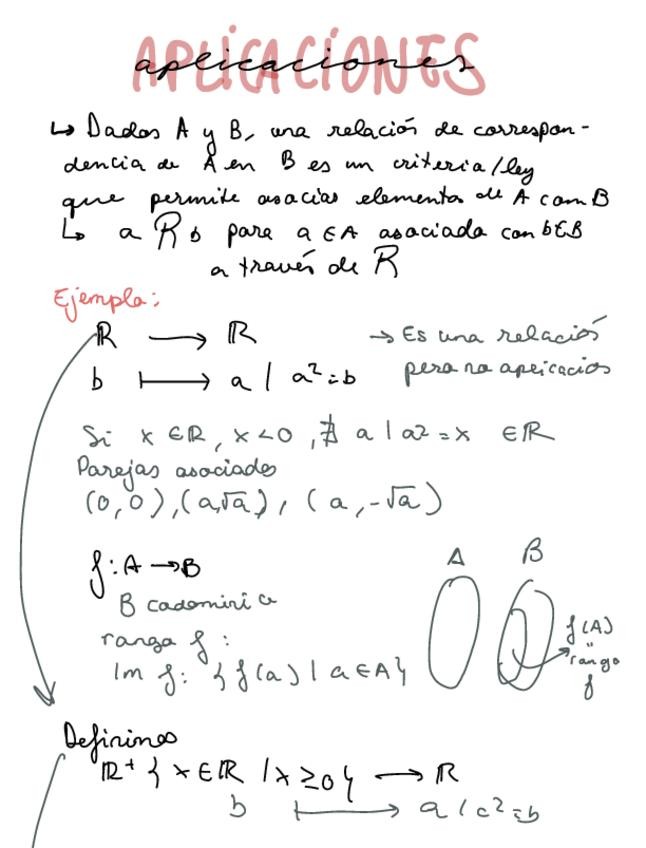 APLICACIONES
aplicaciones
↳ Dados A y B, una relación de correspon-
dencia de A en B es un criterio/ley
que permite asociar elementos de A com B
↳ a R b para a ∈ A asociado con b∈B
a través de R
Ejemplo:
ℝ → ℝ → Es una relación
b ↦ a / a² = b pero no aplicación
Si x ∈ ℝ, x < 0, ∄ a | a² = x ∈ ℝ
Parejas asociadas
(0, 0), (a, √a), (a, -√a)
f: A → B A B
B codominio
rango f: f(A)
Im f: { f(a) | a ∈ A } " rango
f
Definimos
ℝ⁺ { x ∈ ℝ / x ≥ 0 } → ℝ
b ↦ a / c² = b